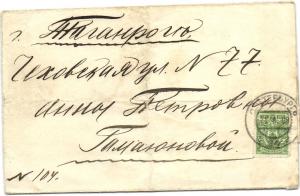 г. Таганрогъ
Чеховская ул. N 77
Анны Петровны
Гамаюновой.
N 104.